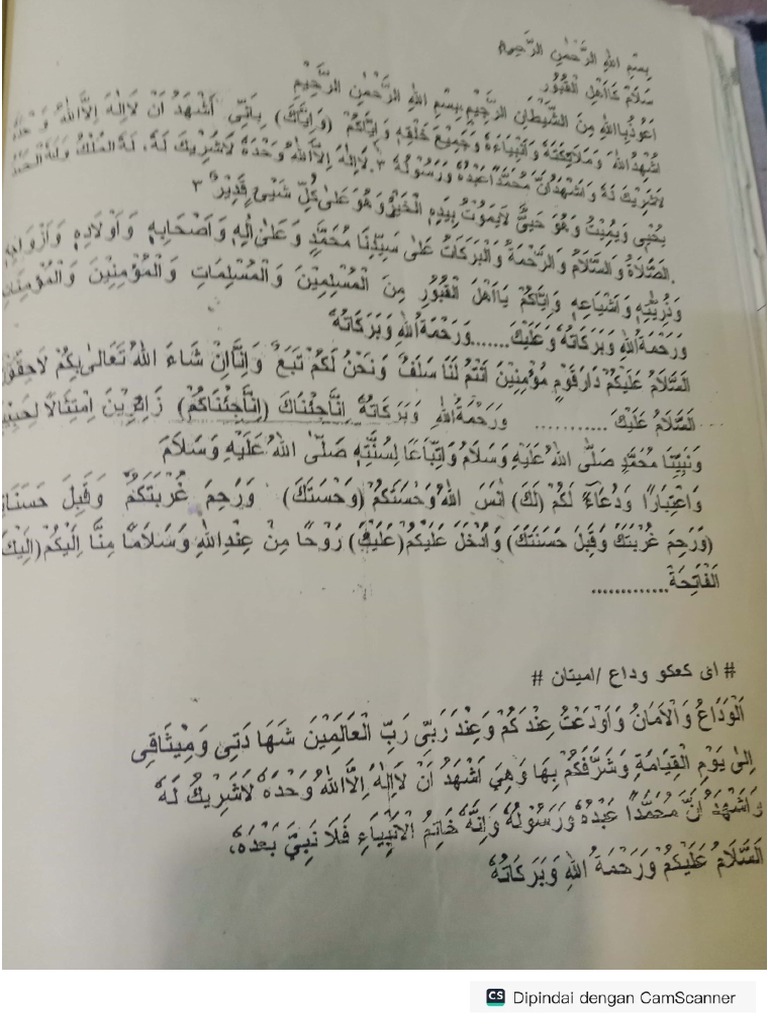 بِسْمِ اللهِ الرَّحْمٰنِ الرَّحِيْمِ
سَلَامْ كَاَهْلِ الْقُبُوْرِ
اَعُوْذُبِااللهِ مِنَ الشَّيْطَانِ الرَّجِيْمِ،بِسْمِ اللهِ الرَّحْمٰنِ الرَّحِيْمِ
اُشْهِدُاللهَ وَمَلَاءِكَتَهُ وَاَنْبِيَاءَهُ وَجَمِيْعَ خَلْقِهٖ وَاِيَّاكُمْ (وَاِيَّاكَ) بِاَنِّى اَشْهَدُ اَنْ لَااِلٰهَ اِلاَّاللهُ وَحْدَهُ
لَاشَرِيْكَ لَهُ وَاَشْهَدُاَنَّ مُحَمَّدًاعَبْدُهُ وَرَسُوْلُهُ ٣.لَااِلٰهَ اِلاَّاللهُ وَحْدَهُ لَاشَرِيْكَ لَهُ، لَهُ الْمُلْكُ وَلَهُ الْحَمْدُ
يُحْيِى وَيُمِيْتُ وَهُوَ حَيٌّ لَايَمُوْتُ بِيَدِهِ الْخَيْرُ وَهُوَ عَلٰى كُلِّ شَيْئٍ قَدِيْرٌ ٣
.الصَّلَاةُ وَالسَّلَامُ وَالرَّحْمَةُ وَالْبَرَكَاتُ عَلٰى سَيِّدِنَا مُحَمَّدٍ وَعَلٰى اٰلِهٖ وَاَصْحَابِهٖ وَاَوْلَادِهٖ وَاَزْوَاجِهٖ
وَذُرِّيَّتِهٖ وَاَشْيَاعِهٖ وَاِيَّاكُمْ يَااَهْلَ الْقُبُوْرِ مِنَ الْمُسْلِمِيْنَ وَالْمُسْلِمَاتِ وَالْمُؤْمِنِيْنَ وَالْمُؤْمِنَاتِ
وَرَحْمَةُاللهِ وَبَرَكَاتُهُ وَعَلَيْكَ.......وَرَحْمَةُاللهِ وَبَرَكَاتُهُ
اَلسَّلَامُ عَلَيْكُمْ دَارَقَوْمٍ مُؤْمِنِيْنَ اَنْتُمْ لَنَا سَلَفٌ وَنَحْنُ لَكُمْ تَبَعٌ وَاِنَّااِنْ شَاءَ اللهُ تَعَالٰى بِكُمْ لَاحِقُوْنَ
اَلسَّلَامُ عَلَيْكَ........... وَرَحْمَةُاللهِ وَبَرَكَاتُهُ اِنَّاجِئْنَاكَ (اِنَّاجِئْنَاكُمْ) زَائِرِيْنَ اِمْتِثَالًا لِحَبِيْبِنَا
وَنَبِيِّنَا مُحَمَّدٍ صَلَّى اللهُ عَلَيْهِ وَسَلَامْ وَاتِّبَاعًا لِسُنَّتِهٖ صَلَّى اللهُ عَلَيْهِ وَسَلَامَ
وَاعْتِبَارًا وَدُعَاءً لَكُمْ (لَكَ) اٰنَسَ اللهُ وَحْسَتَكُمْ (وَحْسَتَكَ) وَرَحِمَ غُرْبَتَكُمْ وَقَبِلَ حَسَنَاتِكُمْ
(وَرَحِمَ غُرْبَتَكَ وَقَبِلَ حَسَنَتَكَ) وَاَدْخَلَ عَلَيْكُمْ(عَلَيْكَ) رَوْحًا مِنْ عِنْدِاللهِ وَسَلَامًا مِنَّا اِلَيْكُمْ(اِلَيْكَ)
اَلْفَاتِحَةْ.............
# اى كعكو وداع /اميتان #
اَلْوَدَاعُ وَالْاَمَانُ وَاَوْدَعْتُ عِنْدَكُمْ وَعِنْدَ رَبِّى رَبِّ الْعَالَمِيْنَ شَهَادَتِى وَمِيْثَاقِى
اِلٰى يَوْمِ الْقِيَامَةِ وَشَرَّفَكُمْ بِهَا وَهِيَ اَشْهَدُ اَنْ لَااِلٰهَ اِلاَّاللهُ وَحْدَهُ لَاشَرِيْكَ لَهُ
وَاَشْهَدُ اَنَّ مُحَمَّدًا عَبْدُهُ وَرَسُوْلُهُ وَاِنَّهُ خَاتِمُ الْاَنْبِيَاءِ فَلَا نَبِيَّ بَعْدَهُ،
اَلسَّلَامُ عَلَيْكُمْ وَرَحْمَةُ اللهِ وَبَرَكَاتُهُ
CS Dipindai dengan CamScanner